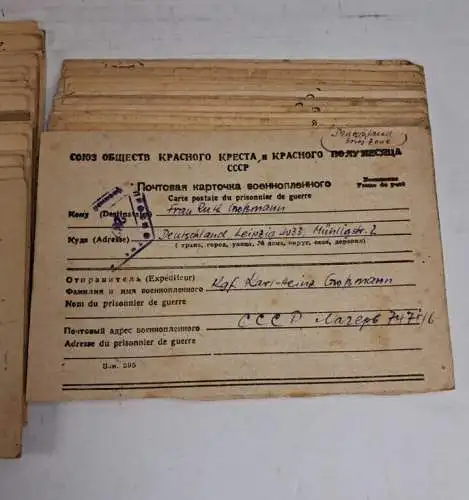 Deutschland
СОЮЗ ОБЩЕСТВ КРАСНОГО КРЕСТА и КРАСНОГО ПОЛУМЕСЯЦА
СССР
Почтовая карточка военнопленного
Carte postale du prisonnier de guerre
Franc de port
Кому (Destinataire) Frau Ruth Großmann
Куда (Adresse) Deutschland Leipzig
(страна, город, улица, № дома, округ, село, деревня)
Отправитель (Expéditeur)
Фамилия и имя военнопленного Kgf. Karl-Heinz Großmann
Nom du prisonnier de guerre
Почтовый адрес военнопленного СССР Лагерь
Adresse du prisonnier de guerre
295